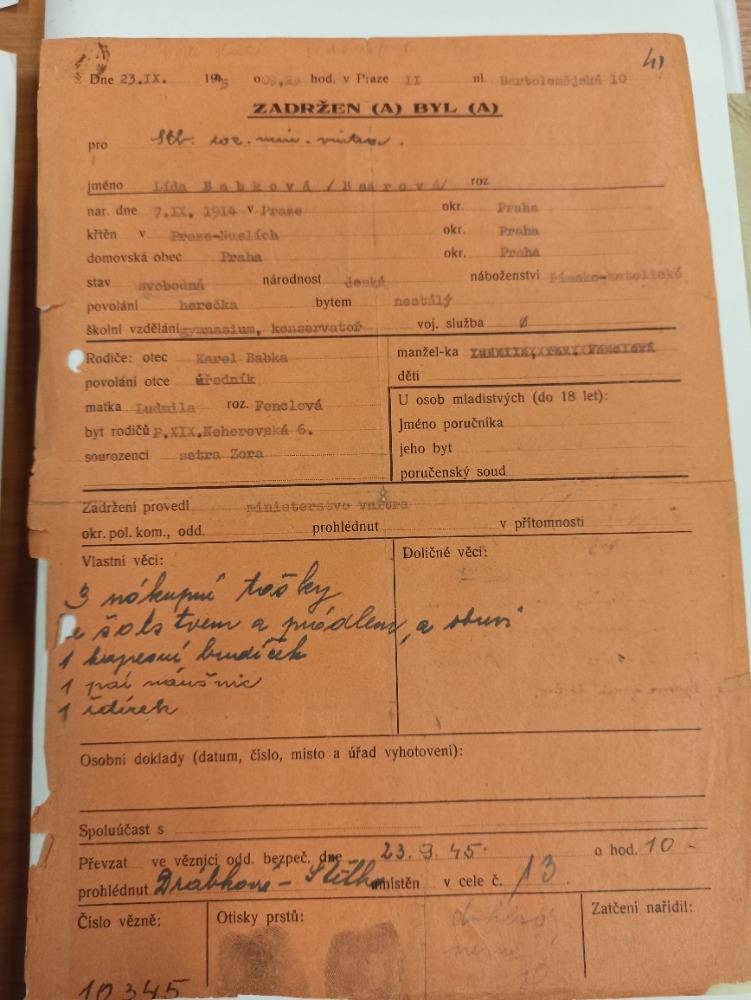 41
Dne 23.IX. 1945 o 09,   hod. v Praze II ul. Bartolomějská 10
ZADRŽEN (A) BYL (A)
pro Stb.   min. vnitra.
jméno Lída Babková /Baarová/ roz
nar. dne 7.IX. 1914 v Praze okr. Praha
křtěn v Praze-Nuslích okr. Praha
domovská obec Praha okr. Praha
stav svobodná národnost česká náboženství římsko-katolické
povolání herečka bytem nestálý
školní vzdělání gymnasium, konservatoř voj. služba ∅
Rodiče: otec Karel Babka manžel-ka
povolání otce úředník děti
matka Ludmila roz. Fenclová U osob mladistvých (do 18 let):
byt rodičů P.XIX.Neherovská 6. Jméno poručníka
sourozenci setra Zora jeho byt
poručenský soud
Zadržení provedl ministerstvo vnitra
okr. pol. kom., odd. prohlédnut v přítomnosti
Vlastní věci: Doličné věci:
3 nákupní tašky
s šatstvem a prádlem, a obuví
1 kapesní budíček
1 pár náušnic
1
Osobní doklady (datum, číslo, místo a úřad vyhotovení):
Spoluúčast s
Převzat ve věznici odd. bezpeč. dne 23.9.45. o hod. 10-
prohlédnut Drábková - umístěn v cele č. 13
Číslo vězně: Otisky prstů: Zatčení nařídil:
10345